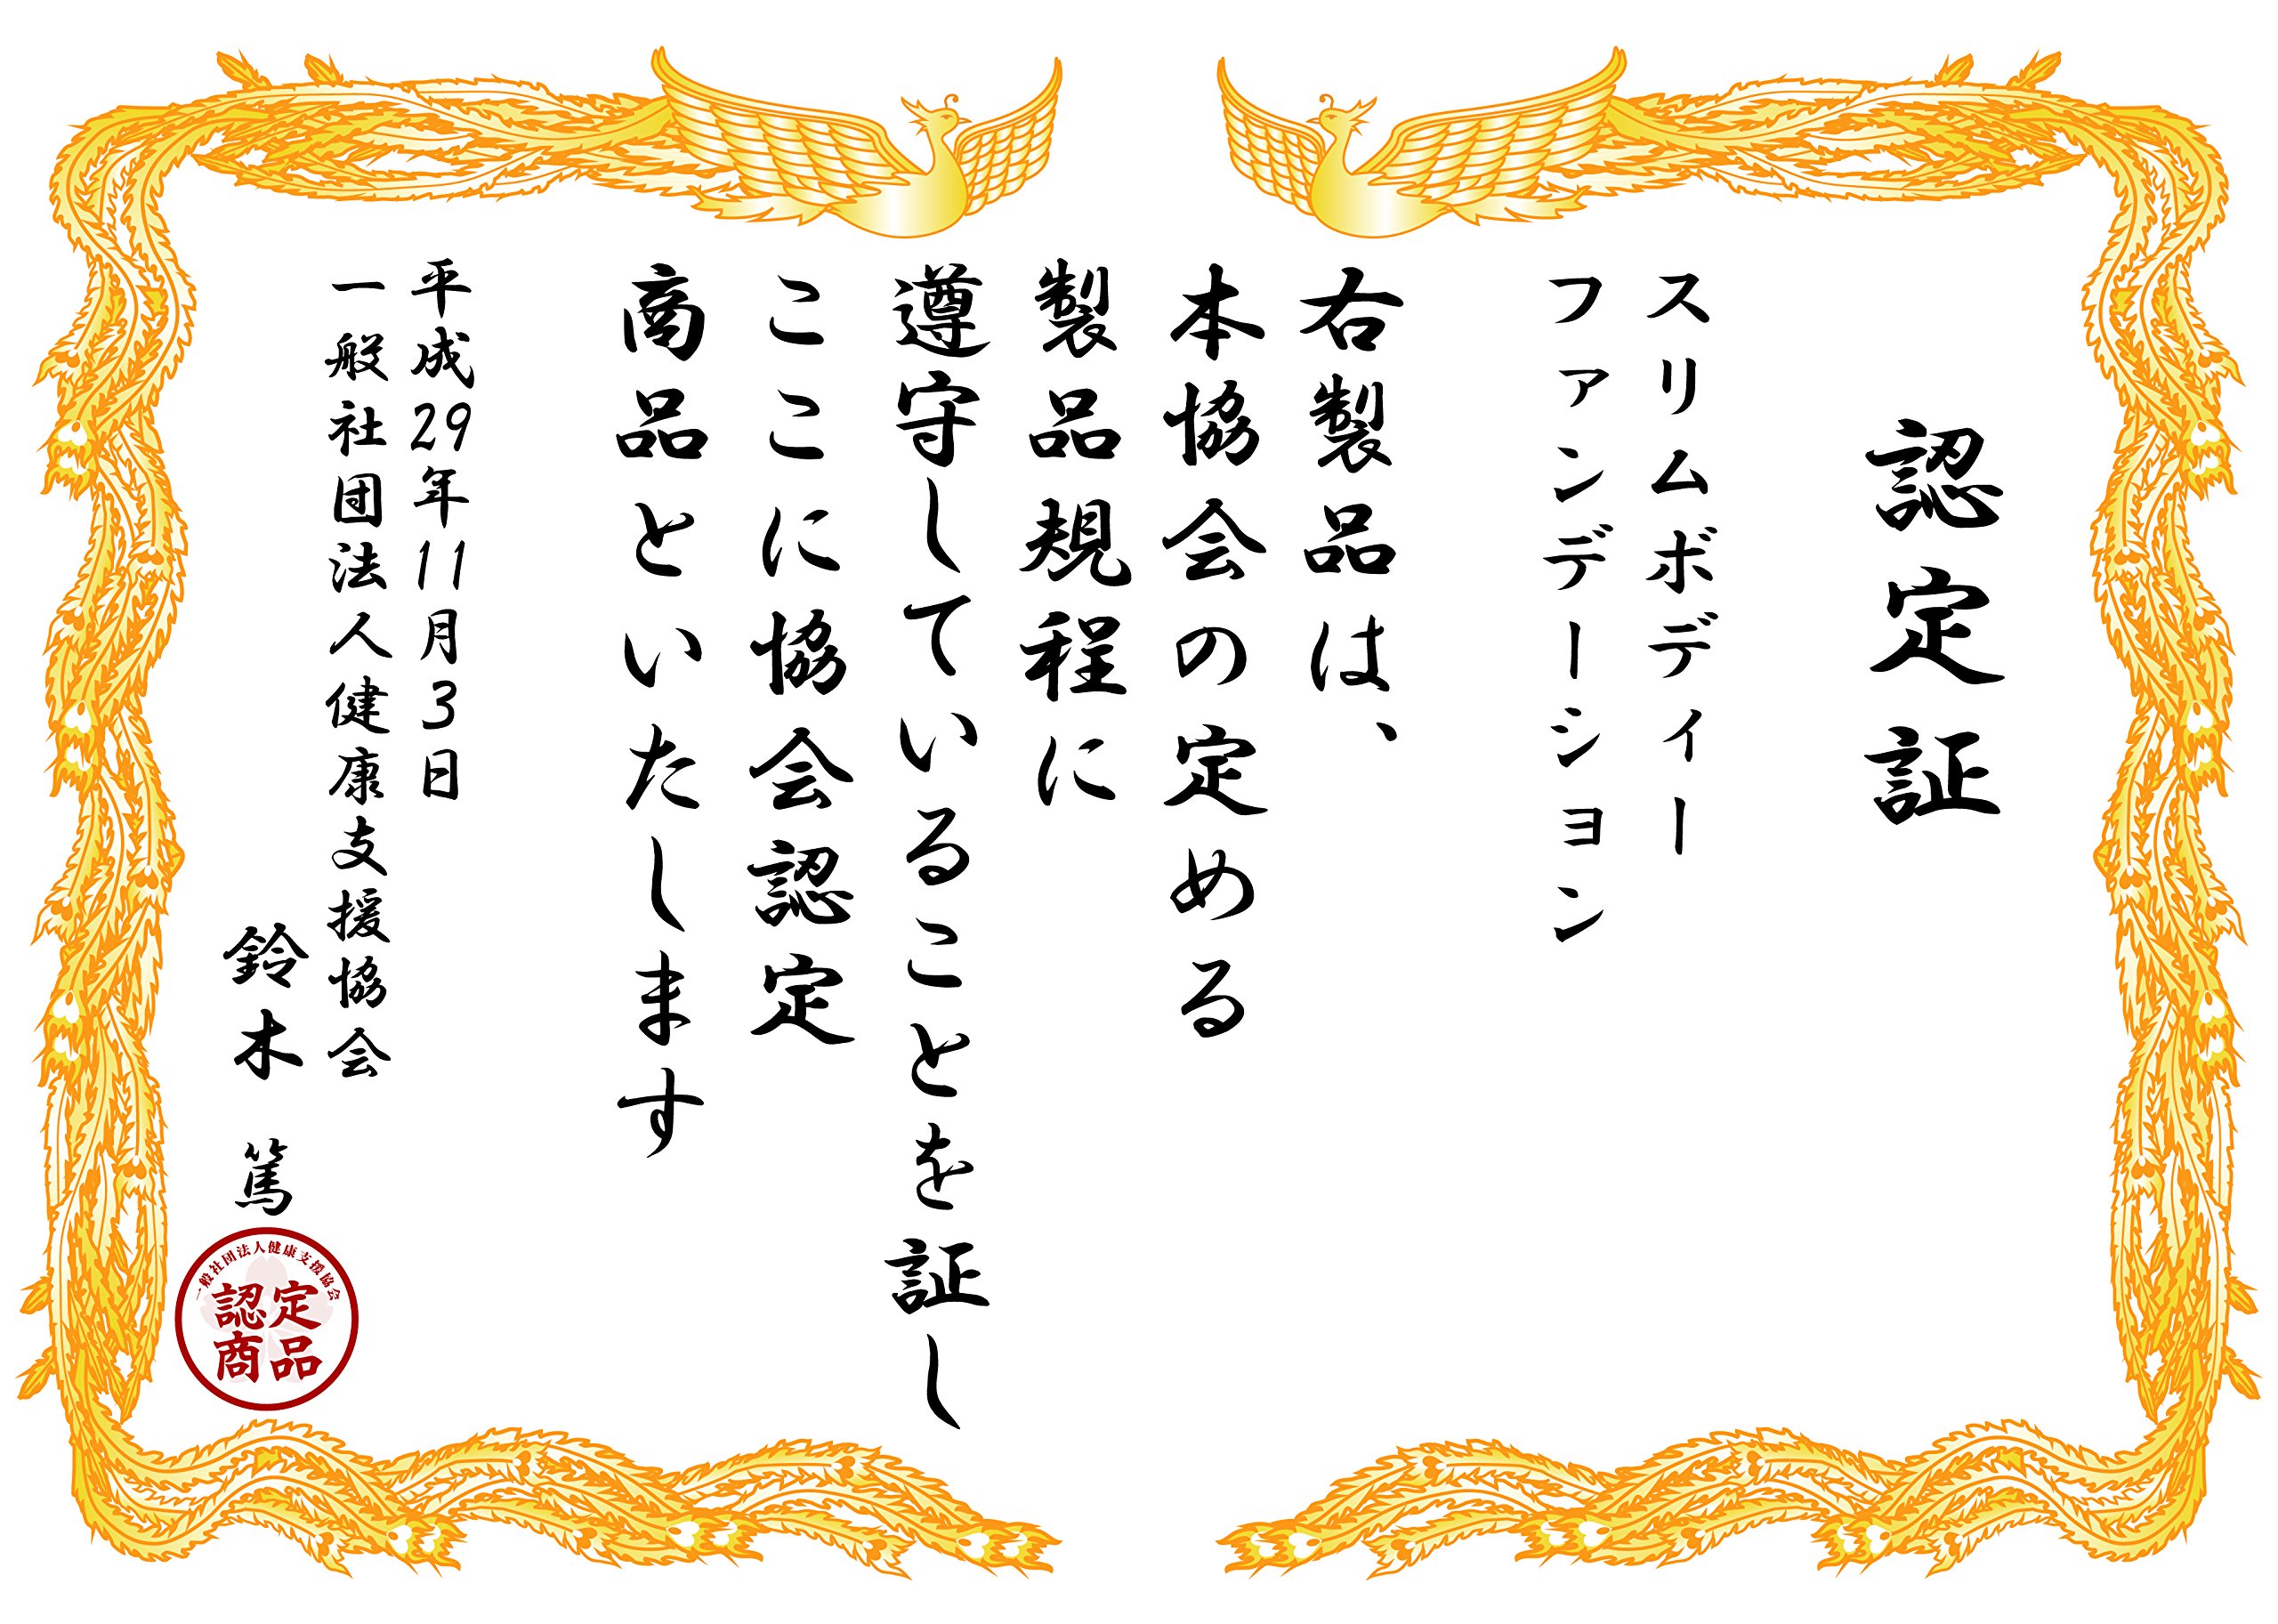 認定証
スリムボディー
ファンデーション
右製品は、
本協会の定める
製品規程に
遵守していることを証し
ここに協会認定
商品といたします
平成29年11月3日
一般社団法人健康支援協会
鈴木 篤
一般社団法人健康支援協会
認定
商品